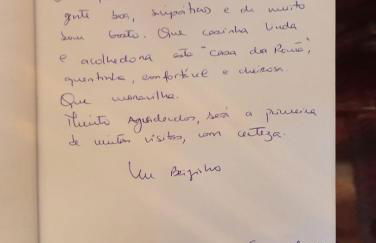 gente boa, simpáticas e de muito
bom gosto. Que casinha linda
e acolhedora esta "casa da Romã",
quentinha, confortável e cheirosa.
Que maravilha.
Muito agradecidos, será a primeira
de muitas visitas, com certeza.
Um Beijinho